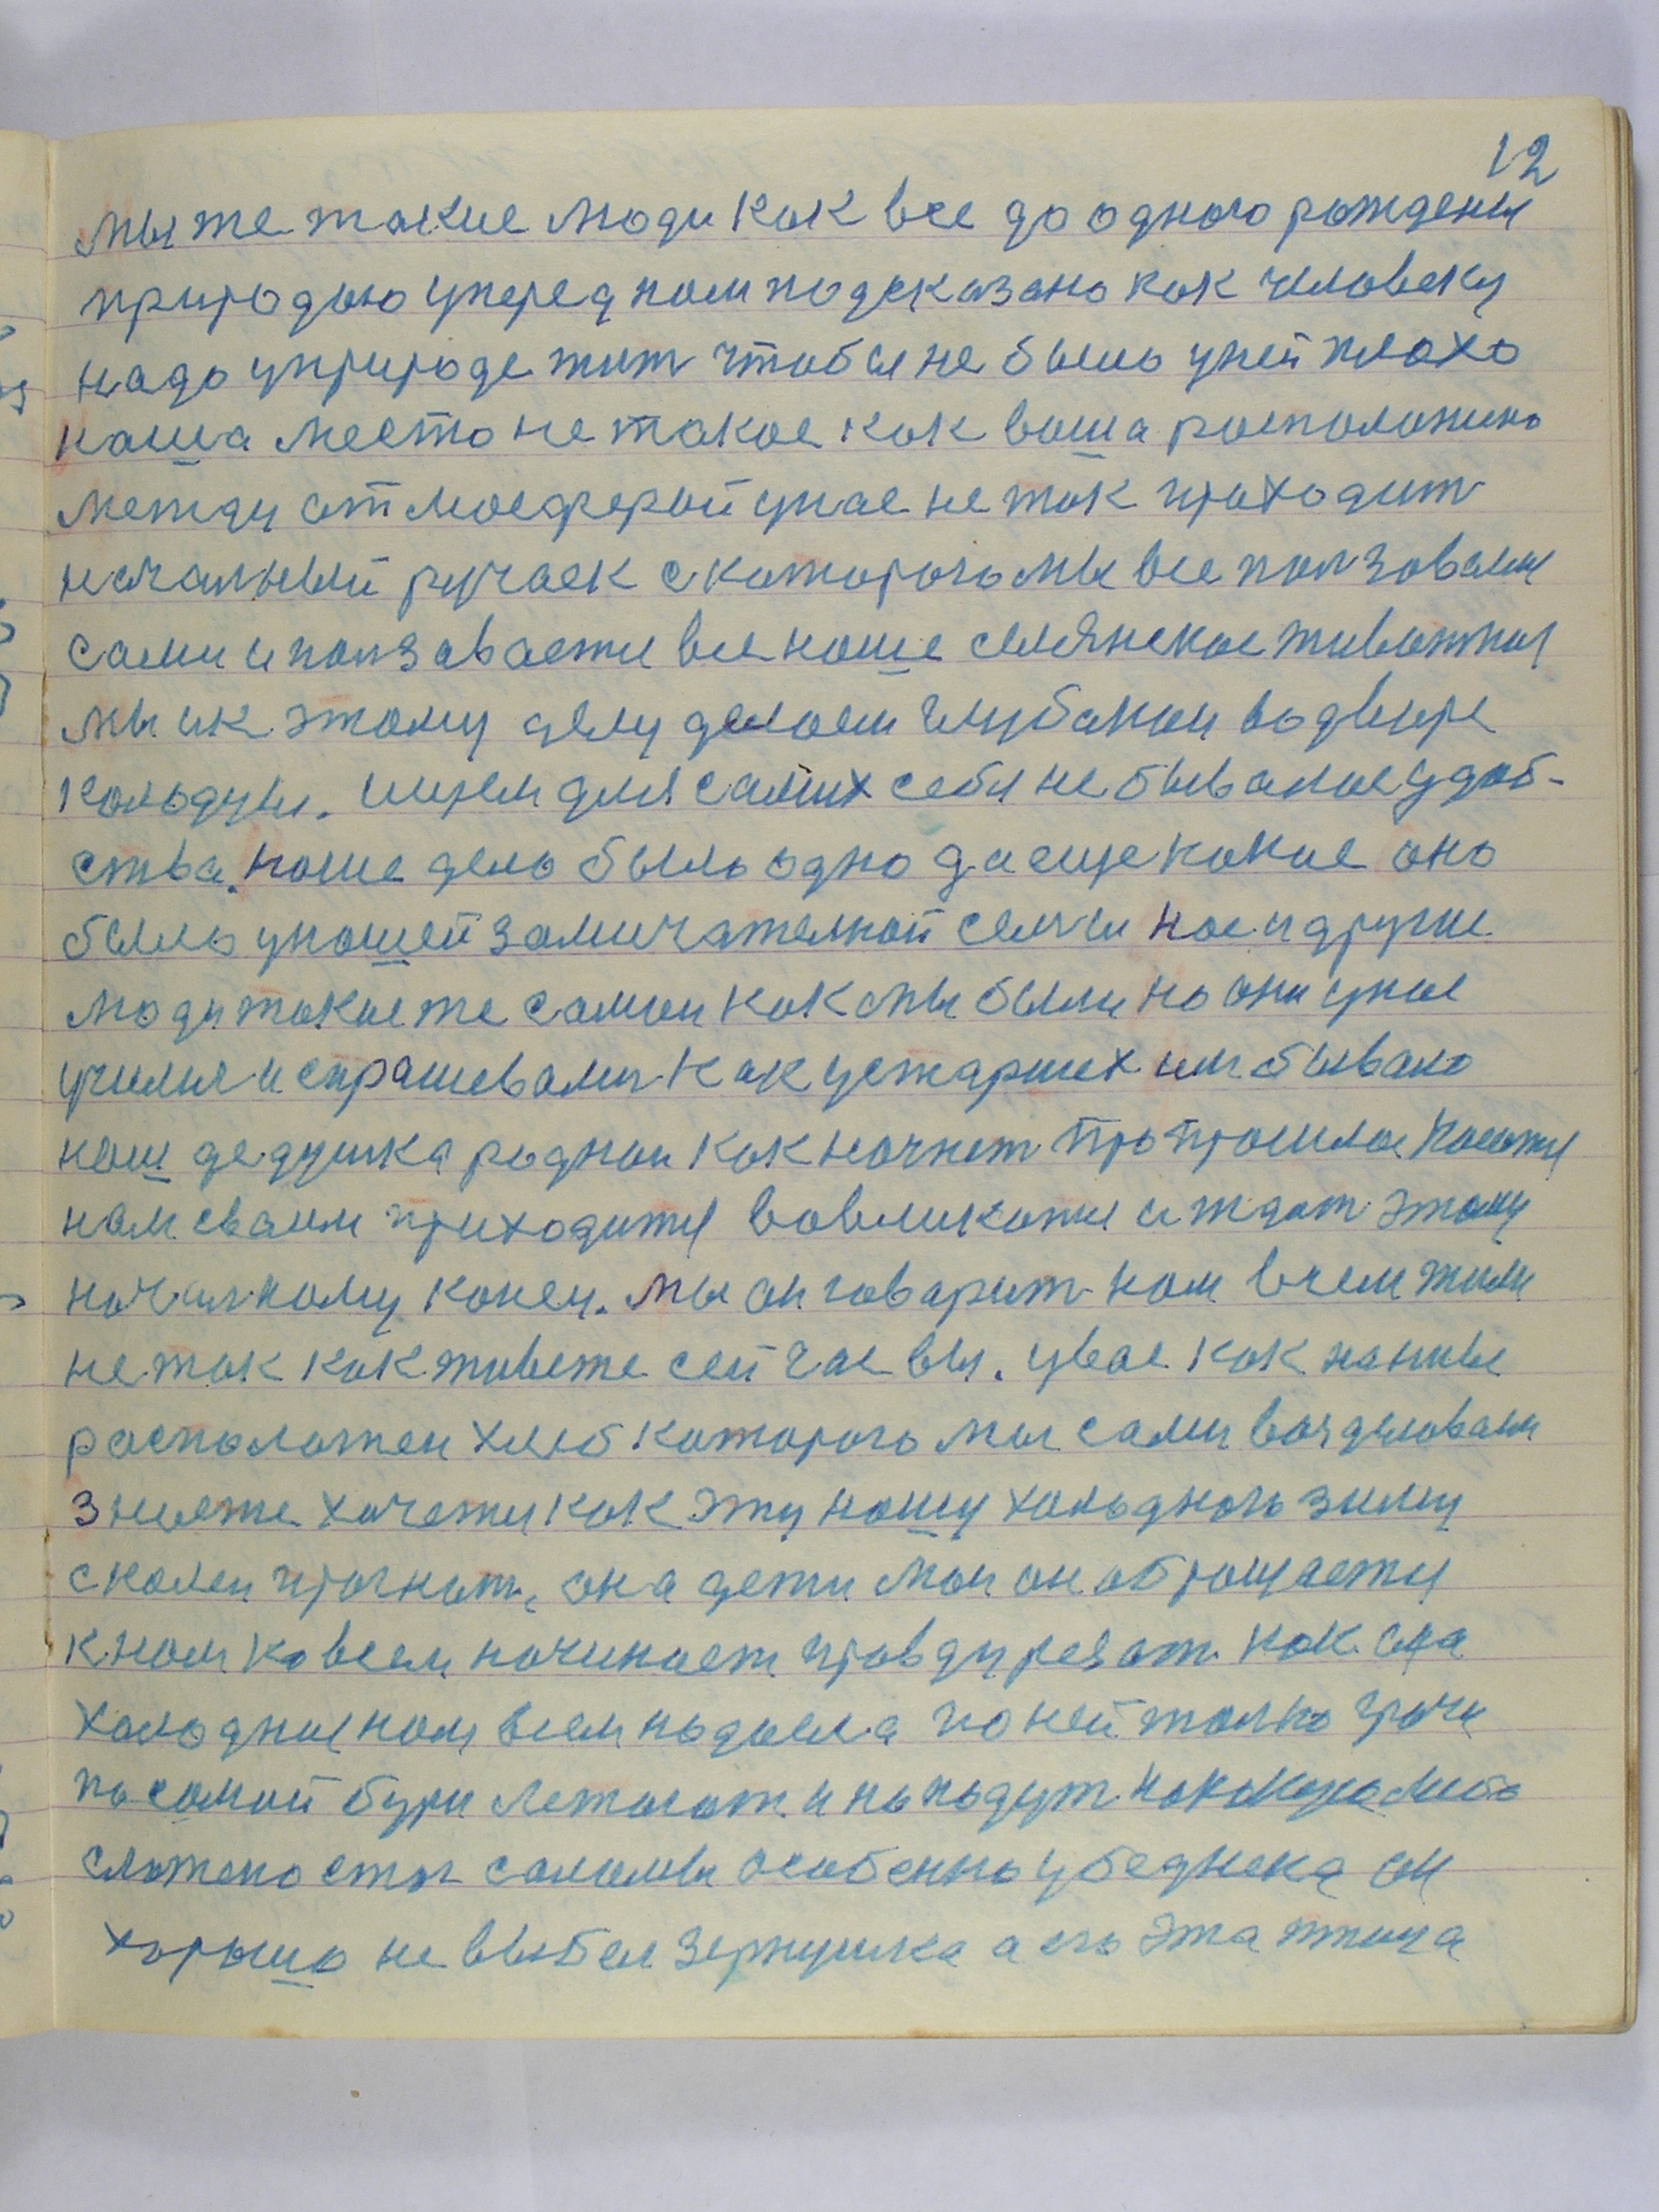 12
мы же такие люди как все до одного рожденыя
природою уперед нам подсказано как человеку
надо уприроде жит чтобы не было уней плохо
наша место не такое как ваша росположино
между атмосферой унас не так проходит
начальный ручаек с которого мы все ползовалися
сами и ползаваетця все наше селянское животная
мы ик этому делу делаем глубакии во дворе
кольодцы. ищем для самих себя не бывалые удоб-
ства. наше дело было одно да еще какое оно
было унашей замичателной семьи нас и другие
люди такие же самаи как мы были но они унас
училися и спрашевали как устарших им бывало
наш дедушка роднои как начнет про прошлое
нам сваим приходитця и ждат этому
началному конец. мы он говарит нам в чем жили
не так как живете сейчас вы. увас как
росположен хлеб которого мы сами
знаете хочетця как эту нашу хольодного зиму
скалеи прогнат, она дети мои он обращаетця
к нам ко всем начинает правду резат. как она
холодныя нам всем надаела по ней толко грачи
по самой бури летаюат и
сложено соломы особенно убедняка он
хорошо не выбел зернушка а его эта птица